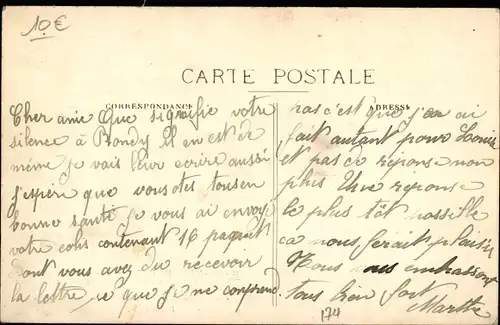 10€
CARTE POSTALE
CORRESPONDANCE
Cher amie que signifie votre
silence à Bondy il en est de
même je vais leur ecrire aussi
j'espère que vous etes tous en
bonne santé je vous ai envoye
votre colis contenant 16 paquets
dont vous avez du recevoir
la lettre, ce que je ne comprend
ADRESSE
pas c'est que j'en ai
fait autant pour Louis
et pas de reponse non
plus Une réponse
le plus tôt possible
ca nous ferait plaisir
Nous vous embrassons
tous bien fort
Marthe
174